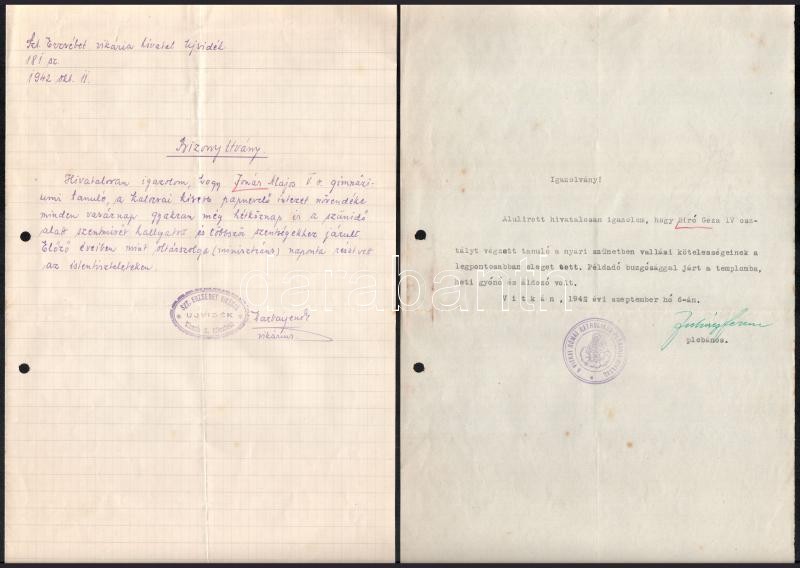 Szt Erzsébet vikária hivatal Ujvidék
181 sz.
1942 okt. 11.
Bizonyítvány.
Hivatalosan igazolom, hogy Jonás Majos V o. gimnázi-
umi tanuló, a kalocsai kisebb papnevelő intézet növendéke
minden vasárnap gyakran még hétköznap is a szünidő
alatt szentmisét hallgatott és többször szentségekhez járult.
Előző években mint oltárszolga (ministráns) naponta résztvett
az istentiszteleteken
SZT. ERZSÉBET
UJVIDÉK
vikárius
Igazolvány!
Alulirott hivatalosan igazolom, hogy Biró Géza IV osz-
tályt végzett tanuló a nyári szünetben vallási kötelességeinek a
legpontosabban eleget tett. Példadó buzgósággal járt a templomba,
heti gyónó és áldozó volt.
Vitkán, 1942 évi szeptember hó 6-án.
plebános.
darabanth